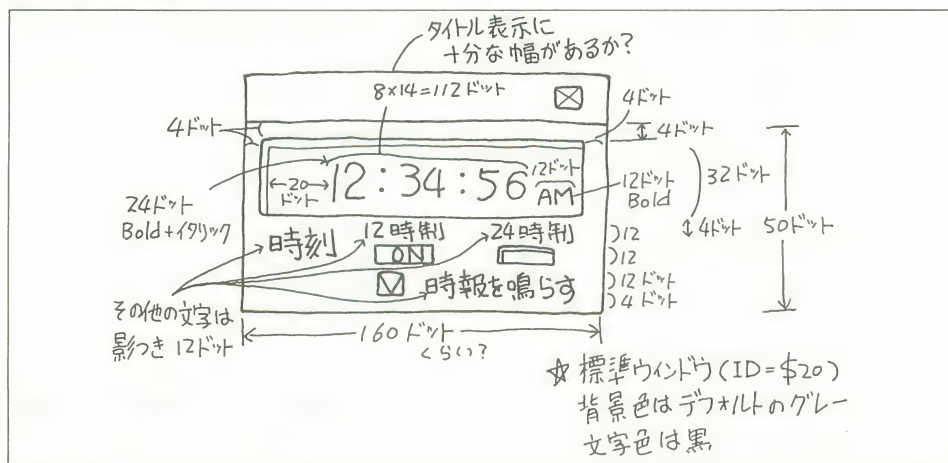 タイトル表示に
十分な幅があるか?
8×14=112ドット
4ドット
4ドット
4ドット
24ドット
Bold+イタリック
←20→
ドット
12:34:56
12ドット
AM
12ドット
Bold
32ドット
4ドット
50ドット
時刻
12時制
24時制
ON
時報を鳴らす
)12
)12
)12ドット
)4ドット
その他の文字は
影つき 12ドット
160ドット
くらい?
☆ 標準ウィンドウ(ID=$20)
背景色はデフォルトのグレー
文字色は黒